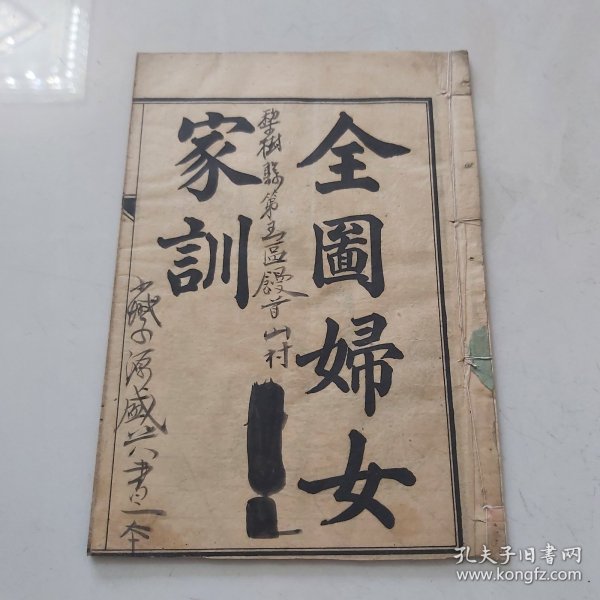 全圖婦女
家訓
梨樹縣第五區饅首山村
源盛興書一本
孔夫子旧书网
www.kongfz.com